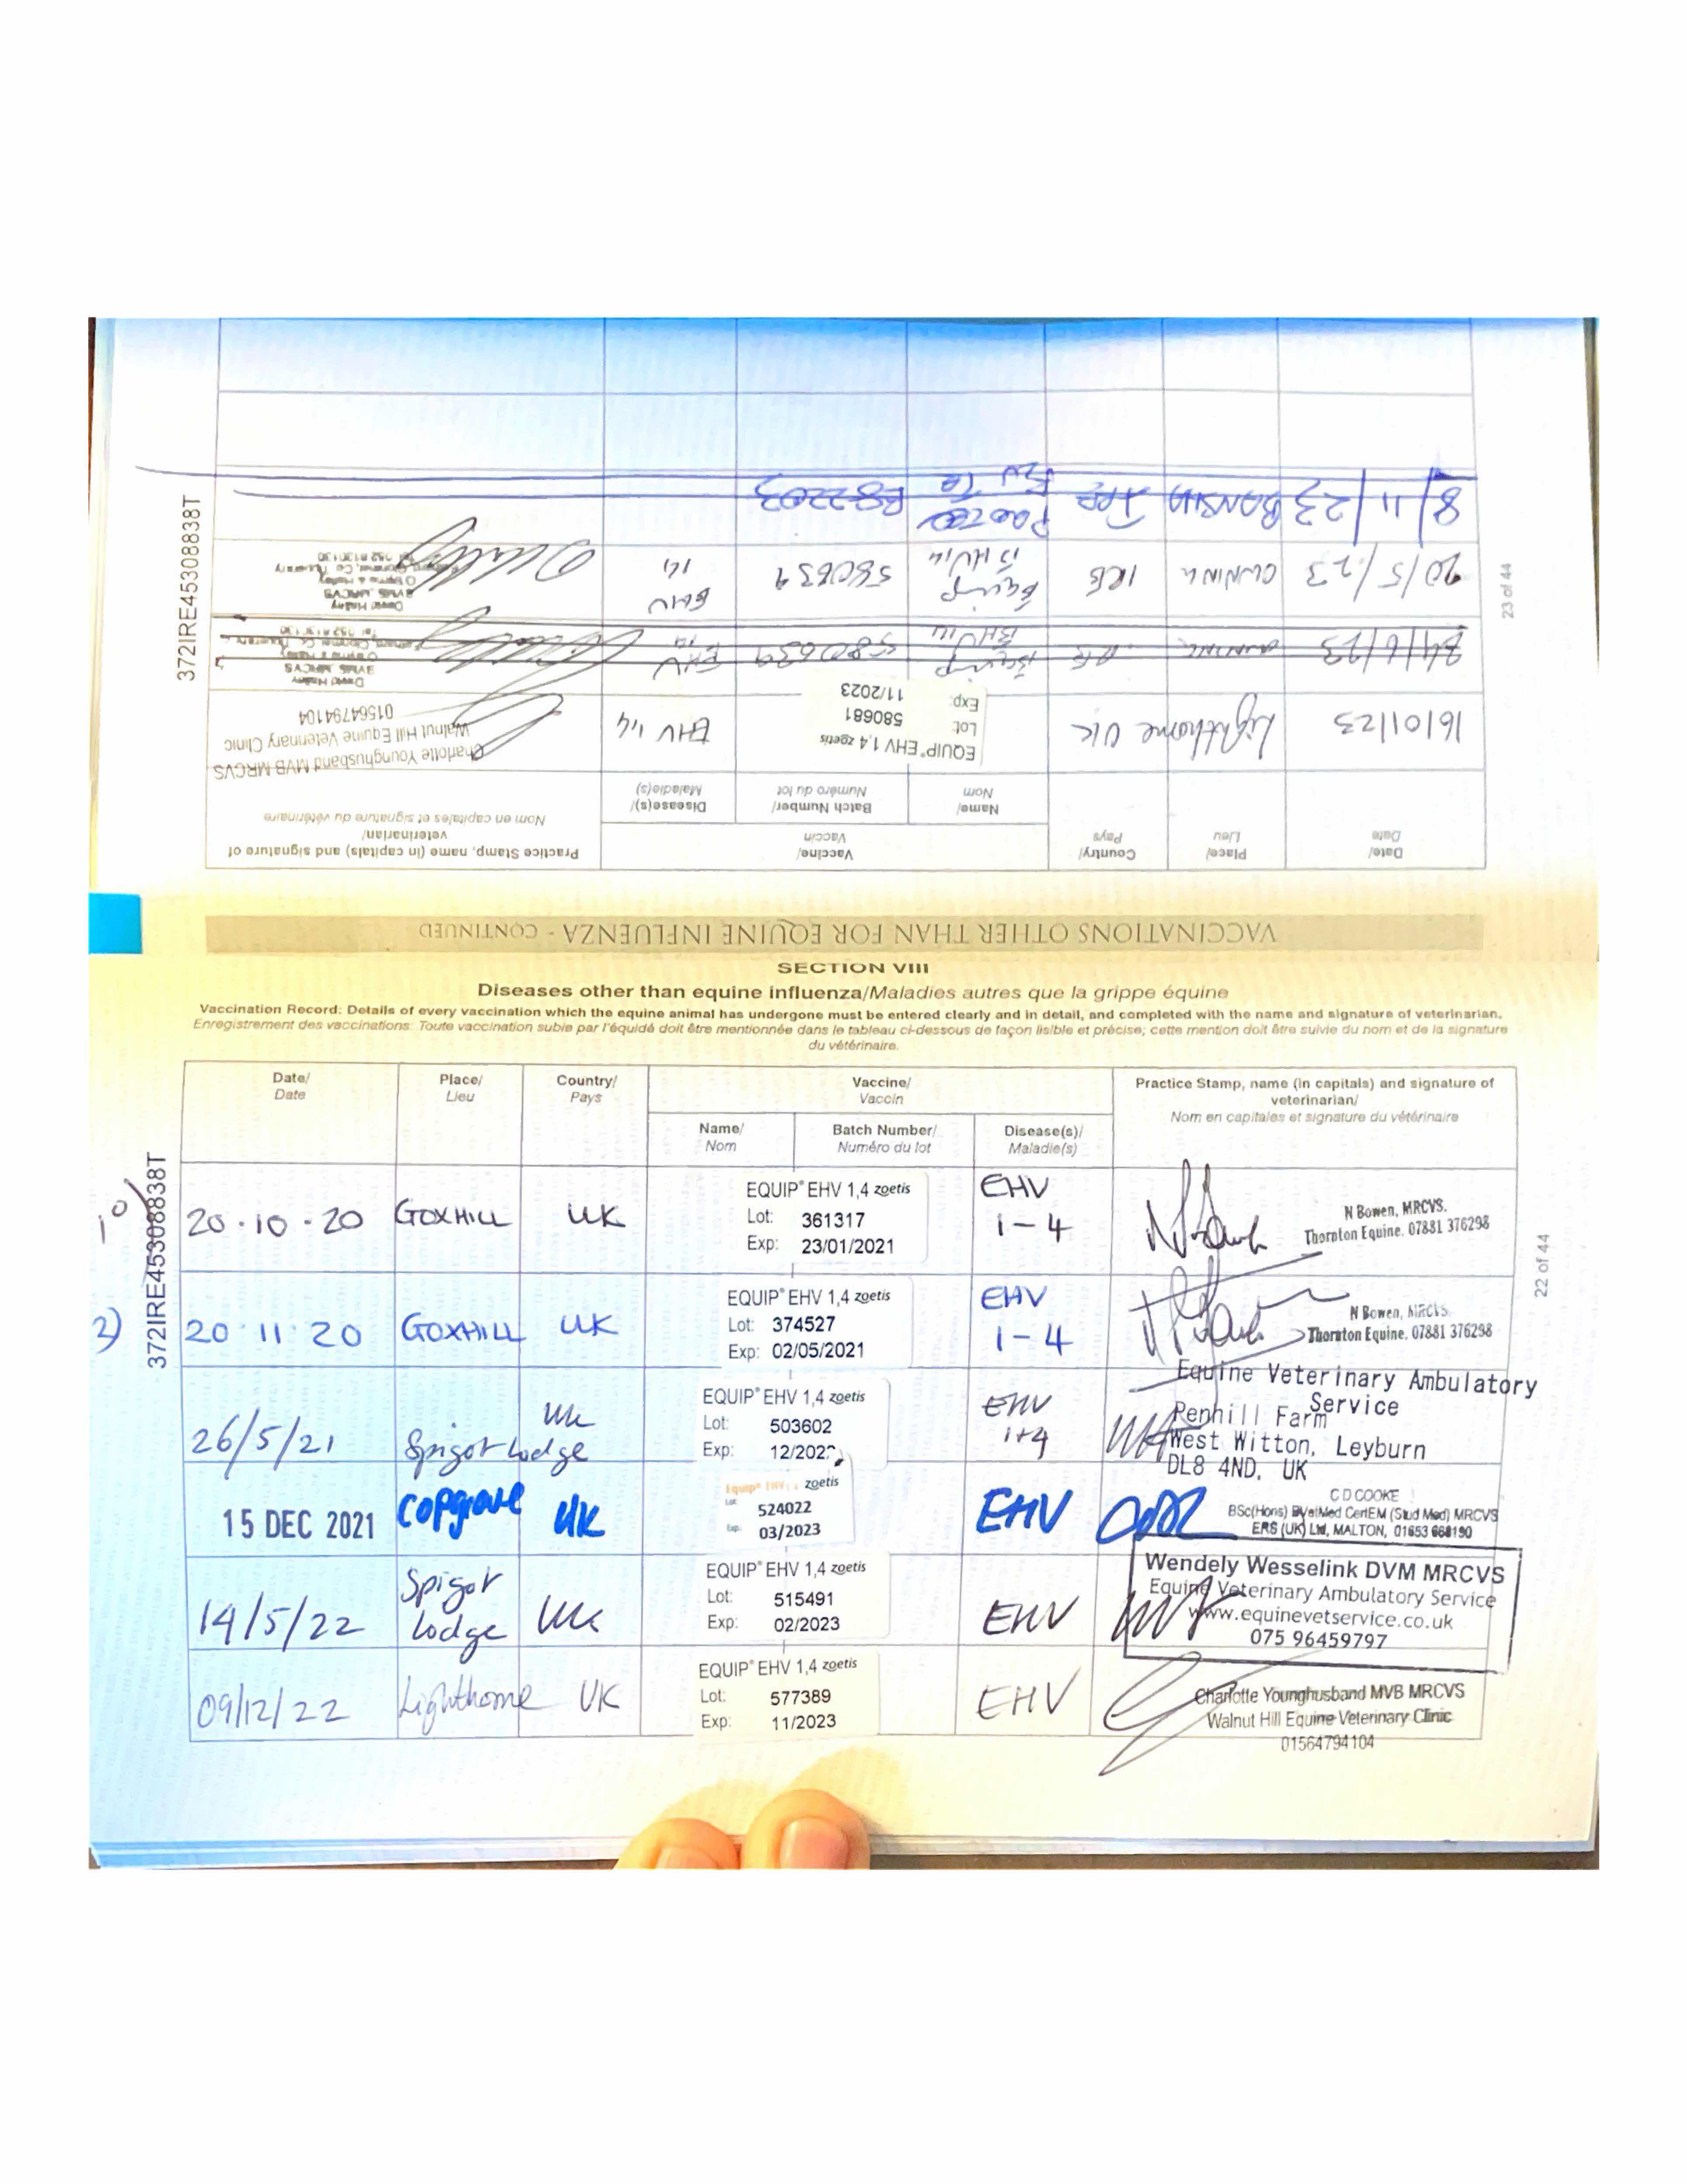 SECTION VIII
Diseases other than equine influenza/Maladies autres que la grippe équine
Vaccination Record: Details of every vaccination which the equine animal has undergone must be entered clearly and in detail, and completed with the name and signature of veterinarian.
Enregistrement des vaccinations: Toute vaccination subie par l'équidé doit être mentionnée dans le tableau ci-dessous de façon lisible et précise; cette mention doit être suivie du nom et de la signature
du vétérinaire.
Date/ Place/ Country/ Vaccine/ Practice Stamp, name (in capitals) and signature of
Date Lieu Pays Vaccin veterinarian/
Nom en capitales et signature du vétérinaire
Name/ Batch Number/ Disease(s)/
Nom Numéro du lot Maladie(s)
372IRE45308838T
22 of 44
1º)
20·10·20 GOXHILL UK
EQUIP® EHV 1,4 zoetis
Lot: 361317
Exp: 23/01/2021
EHV
1-4
N Bowen, MRCVS.
Thornton Equine. 07881 376298
2)
20·11·20 GOXHILL UK
EQUIP® EHV 1,4 zoetis
Lot: 374527
Exp: 02/05/2021
EHV
1-4
N Bowen, MRCVS.
Thornton Equine. 07881 376298
26/5/21 Spigot Lodge UK
EQUIP® EHV 1,4 zoetis
Lot: 503602
Exp: 12/202
EHV
1+4
Equine Veterinary Ambulatory
Service
Penhill Farm
West Witton, Leyburn
DL8 4ND, UK
15 DEC 2021 Copgrove UK
Equip® EHV 1,4 zoetis
Lot: 524022
Exp. 03/2023
EHV
C D COOKE
BSc(Hons) BVetMed CertEM (Stud Med) MRCVS
ERS (UK) Ltd, MALTON, 01653 668190
14/5/22 Spigot Lodge UK
EQUIP® EHV 1,4 zoetis
Lot: 515491
Exp: 02/2023
EHV
Wendely Wesselink DVM MRCVS
Equine Veterinary Ambulatory Service
www.equinevetservice.co.uk
075 96459797
09/12/22 Lighthorne UK
EQUIP® EHV 1,4 zoetis
Lot: 577389
Exp: 11/2023
EHV
Charlotte Younghusband MVB MRCVS
Walnut Hill Equine Veterinary Clinic
01564794104
VACCINATIONS OTHER THAN FOR EQUINE INFLUENZA - CONTINUED
Date/ Place/ Country/ Vaccine/ Practice Stamp, name (in capitals) and signature of
Date Lieu Pays Vaccin veterinarian/
Nom en capitales et signature du vétérinaire
Name/ Batch Number/ Disease(s)/
Nom Numéro du lot Maladie(s)
372IRE45308838T
23 of 44
16/01/23 Lighthorne UK
EQUIP® EHV 1,4 zoetis
Lot: 580681
Exp: 11/2023
EHV 1,4
Charlotte Younghusband MVB MRCVS
Walnut Hill Equine Veterinary Clinic
01564794104
Equip
EHV 1,4
580639
EHV
David Halley
BVMS, MRCVS
20/5/23
Equip
EHV 1,4
580639
EHV
1,4
David Halley
BVMS, MRCVS
8/11/23 BANSHA IRE